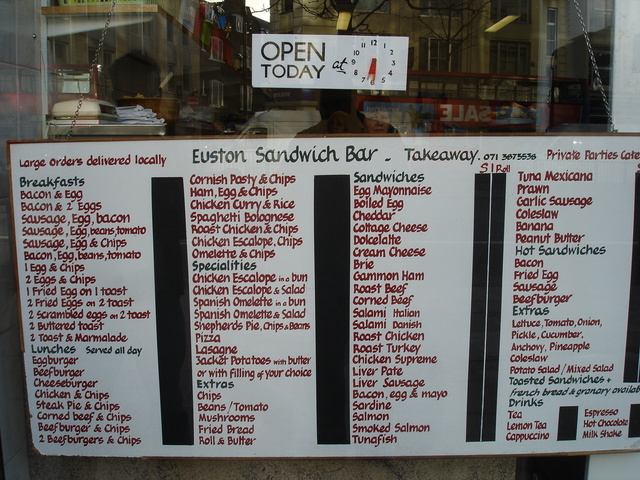 OPEN
TODAY at
12
11 1
10 2
9 3
8 4
7 5
6
SALE
Large orders delivered locally
Euston Sandwich Bar - Takeaway. 071 3875536
Private Parties Cate
Breakfasts
Bacon & Egg
Bacon & 2 Eggs
Sausage, Egg, bacon
Sausage, Egg, beans, tomato
Sausage, Egg & Chips
Bacon, Egg, beans, tomato
1 Egg & Chips
2 Eggs & Chips
1 Fried Egg on 1 toast
2 Fried Eggs on 2 toast
2 Scrambled eggs on 2 toast
2 Buttered toast
2 Toast & Marmalade
Lunches Served all day
Eggburger
Beefburger
Cheeseburger
Chicken & Chips
Steak Pie & Chips
Corned beef & Chips
Beefburger & Chips
2 Beefburgers & Chips
Cornish Pasty & Chips
Ham, Egg & Chips
Chicken Curry & Rice
Spaghetti Bolognese
Roast Chicken & Chips
Chicken Escalope, Chips
Omelette & Chips
Specialities
Chicken Escalope in a bun
Chicken Escalope & Salad
Spanish Omelette in a bun
Spanish Omelette & Salad
Shepherds Pie, Chips & Beans
Pizza
Lasagne
Jacket Potatoes with butter
or with filling of your choice
Extras
Chips
Beans / Tomato
Mushrooms
Fried Bread
Roll & Butter
Sandwiches
S | Roll
Egg Mayonnaise
Boiled Egg
Cheddar
Cottage Cheese
Dolcelatte
Cream Cheese
Brie
Gammon Ham
Roast Beef
Corned Beef
Salami Italian
Salami Danish
Roast Chicken
Roast Turkey
Chicken Supreme
Liver Pate
Liver Sausage
Bacon, egg & mayo
Sardine
Salmon
Smoked Salmon
Tunafish
Tuna Mexicana
Prawn
Garlic Sausage
Coleslaw
Banana
Peanut Butter
Hot Sandwiches
Bacon
Fried Egg
Sausage
Beefburger
Extras
Lettuce, Tomato, Onion,
Pickle, Cucumber,
Anchovy, Pineapple
Coleslaw
Potato Salad / Mixed Salad
Toasted Sandwiches +
french bread & granary availab
Drinks
Tea
Lemon Tea
Cappuccino
Espresso
Hot Chocolate
Milk Shake